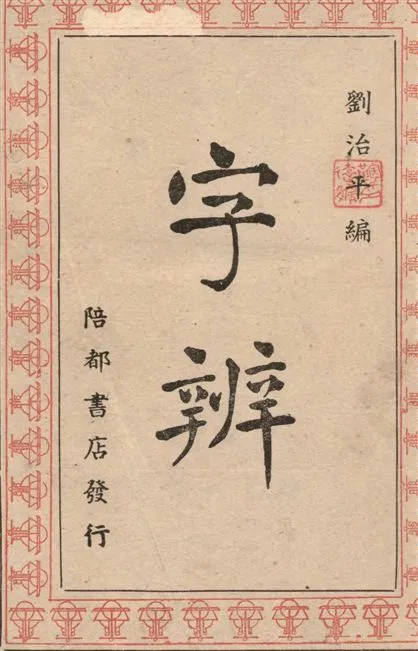 劉治平編
字辨
陪都書店發行